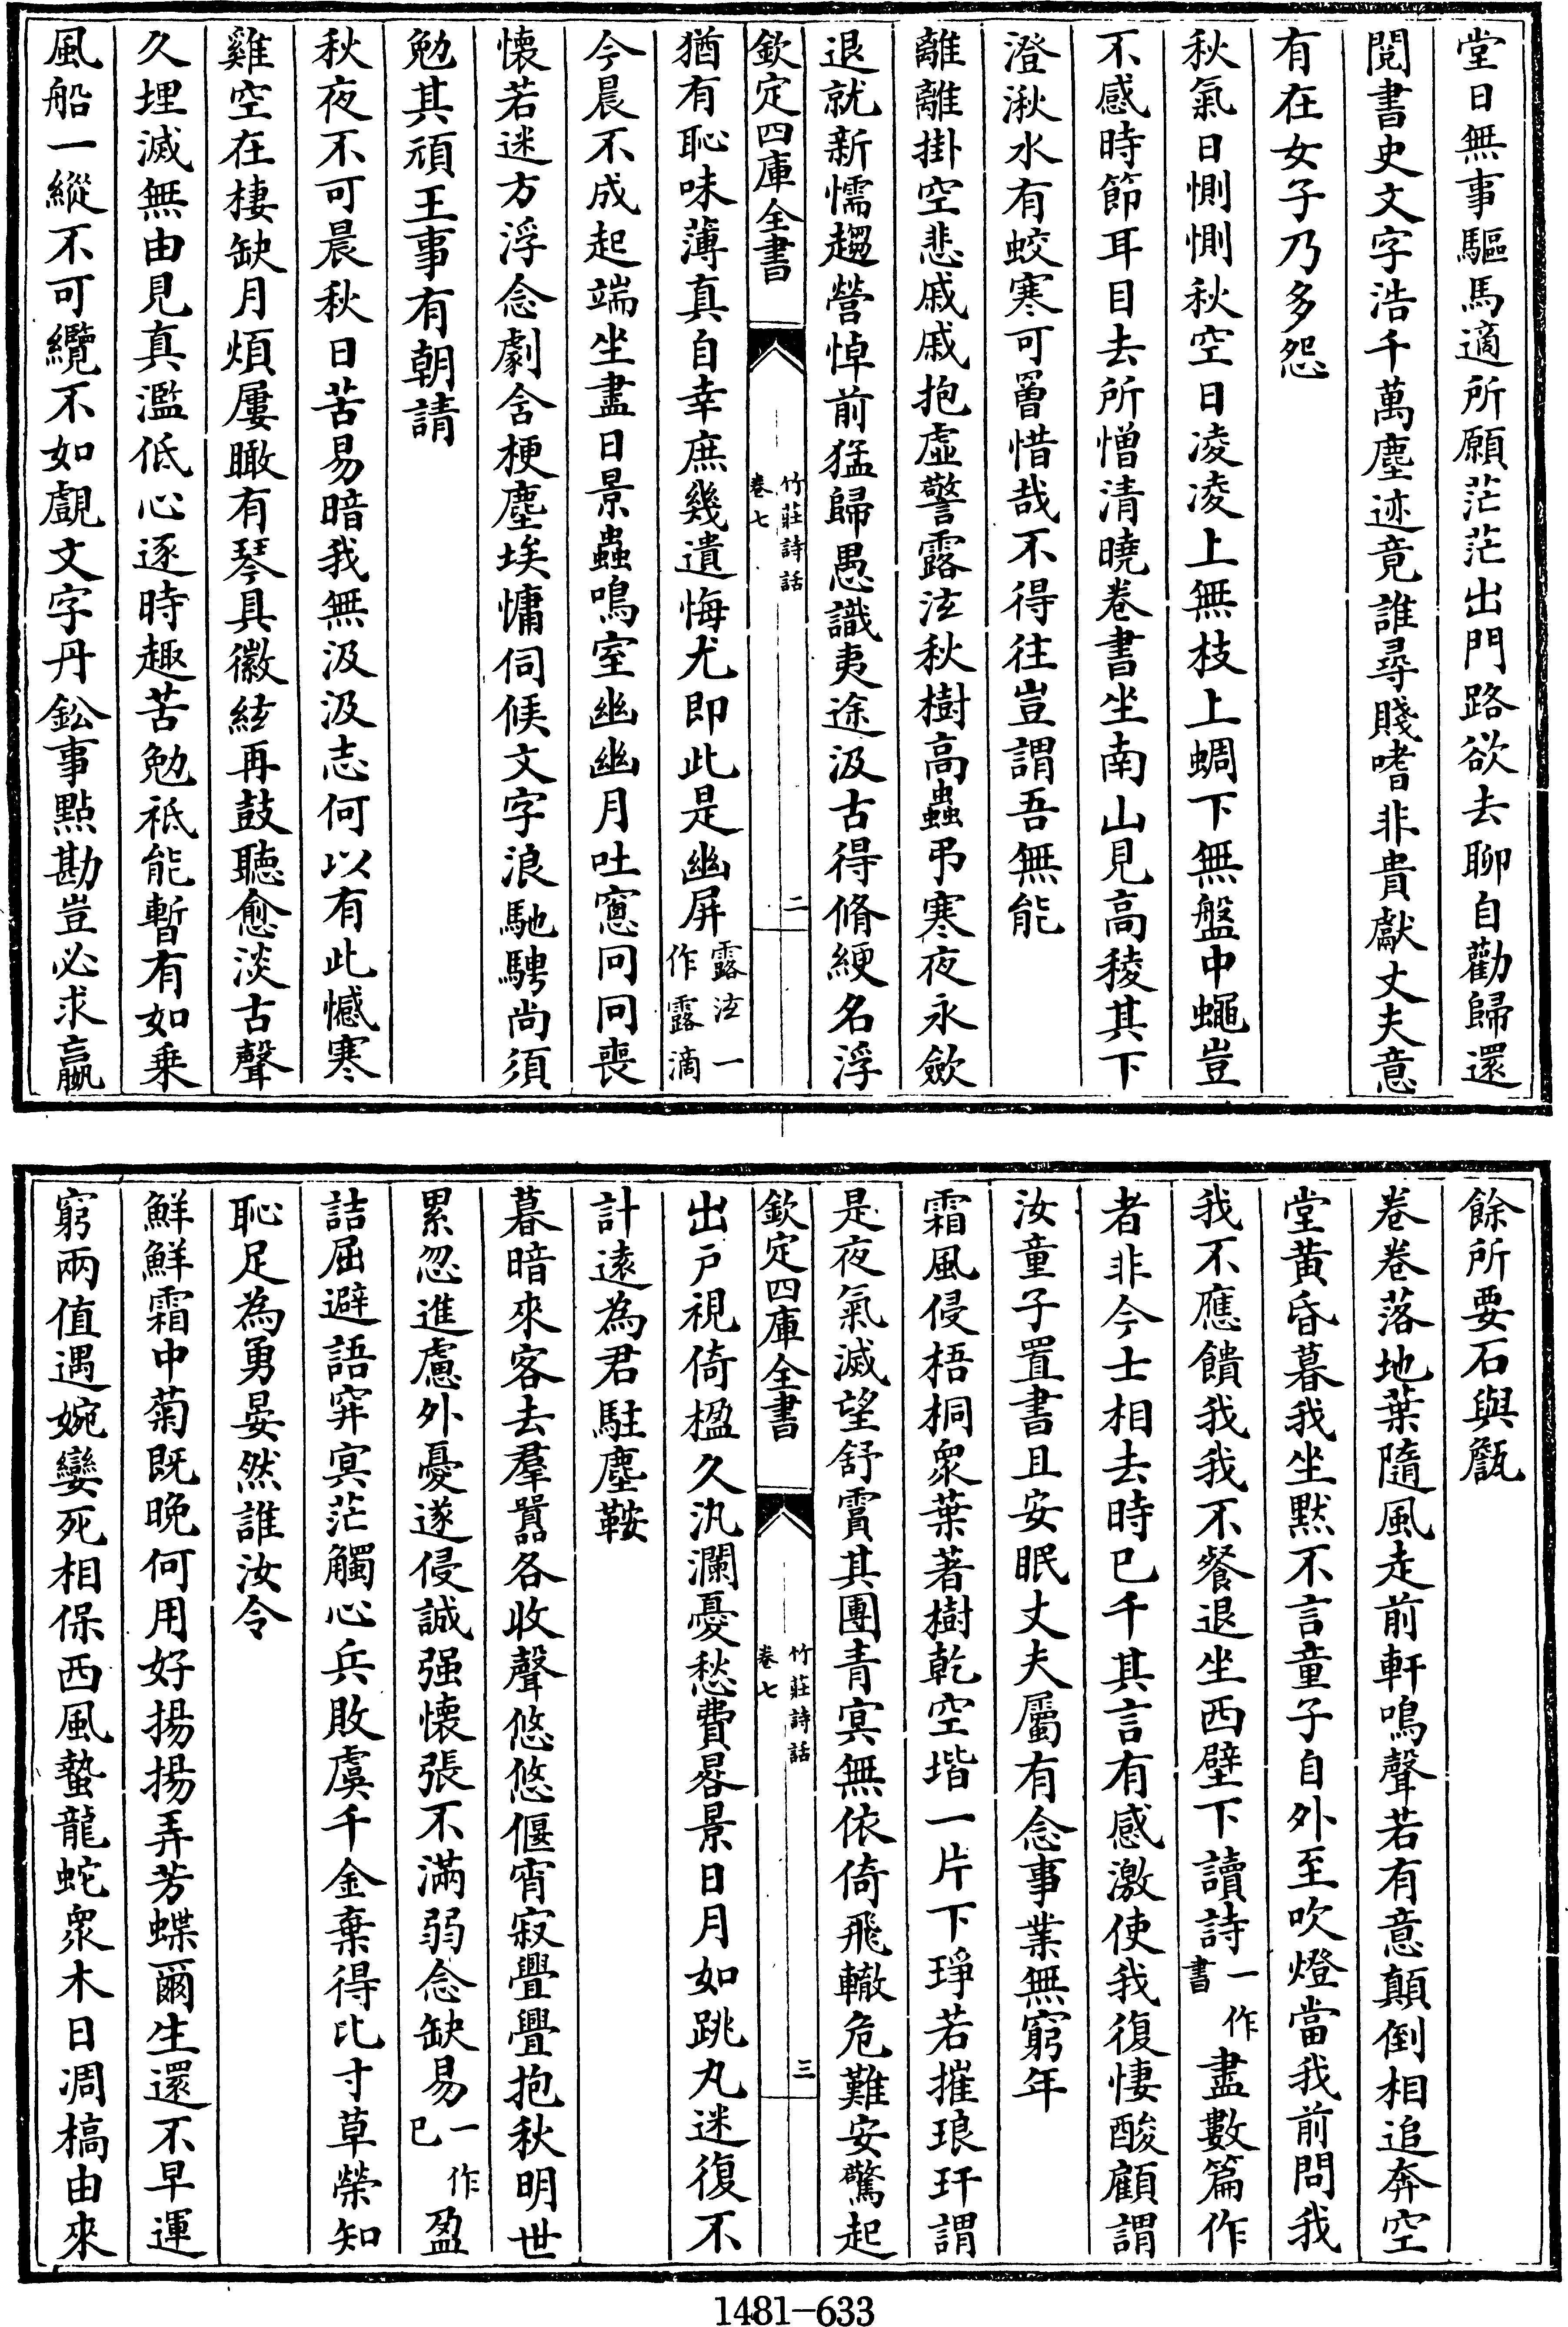 堂日無事驅馬適所願茫茫出門路欲去聊自勸歸還
閱書史文字浩千萬塵迹竟誰尋賤嗜非貴獻丈夫意
有在女子乃多怨
秋氣日惻惻秋空日凌凌上無枝上蜩下無盤中蠅豈
不感時節耳目去所憎清曉卷書坐南山見高稜其下
澄湫水有蛟寒可罾惜哉不得往豈謂吾無能
離離掛空悲戚戚抱虛警露泫秋樹高蟲弔寒夜永斂
退就新懦趨營悼前猛歸愚識夷途汲古得脩綆名浮
欽定四庫全書
竹莊詩話
卷七
二
猶有恥味薄真自幸庶幾遺悔尤即此是幽屏露泫一作露滴
今晨不成起端坐盡日景蟲鳴室幽幽月吐窻冏冏喪
懷若迷方浮念劇含梗塵埃慵伺候文字浪馳騁尚須
勉其頑王事有朝請
秋夜不可晨秋日苦易暗我無汲汲志何以有此憾寒
雞空在棲缺月煩屢瞰有琴具徽絃再鼓聽愈淡古聲
久埋滅無由見真濫低心逐時趣苦勉祗能暫有如乗
風船一縱不可纜不如覷文字丹鉛事點勘豈必求贏
餘所要石與甔
卷卷落地葉隨風走前軒鳴聲若有意顛倒相追奔空
堂黄昏暮我坐默不言童子自外至吹燈當我前問我
我不應饋我我不餐退坐西壁下讀詩一作書盡數篇作
者非今士相去時已千其言有感激使我復悽酸顧謂
汝童子置書且安眠丈夫屬有念事業無窮年
霜風侵梧桐衆葉著樹乾空堦一片下琤若摧琅玕謂
是夜氣滅望舒霣其團青冥無依倚飛轍危難安驚起
欽定四庫全書
竹莊詩話
卷七
三
出戶視倚楹久汍瀾憂愁費晷景日月如跳丸迷復不
計遠為君駐塵鞍
暮暗來客去羣囂各收聲悠悠偃宵寂亹亹抱秋明世
累忽進慮外憂遂侵誠强懷張不滿弱念缺易一作已盈
詰屈避語穽冥茫觸心兵敗虞千金棄得比寸草榮知
恥足為勇晏然誰汝令
鮮鮮霜中菊既晚何用好揚揚弄芳蝶爾生還不早運
窮兩值遇婉孌死相保西風蟄龍蛇衆木日凋槁由來
1481-633